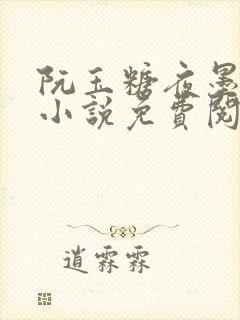 阮玉糖夜墨
小說免費閱
逍霖霖